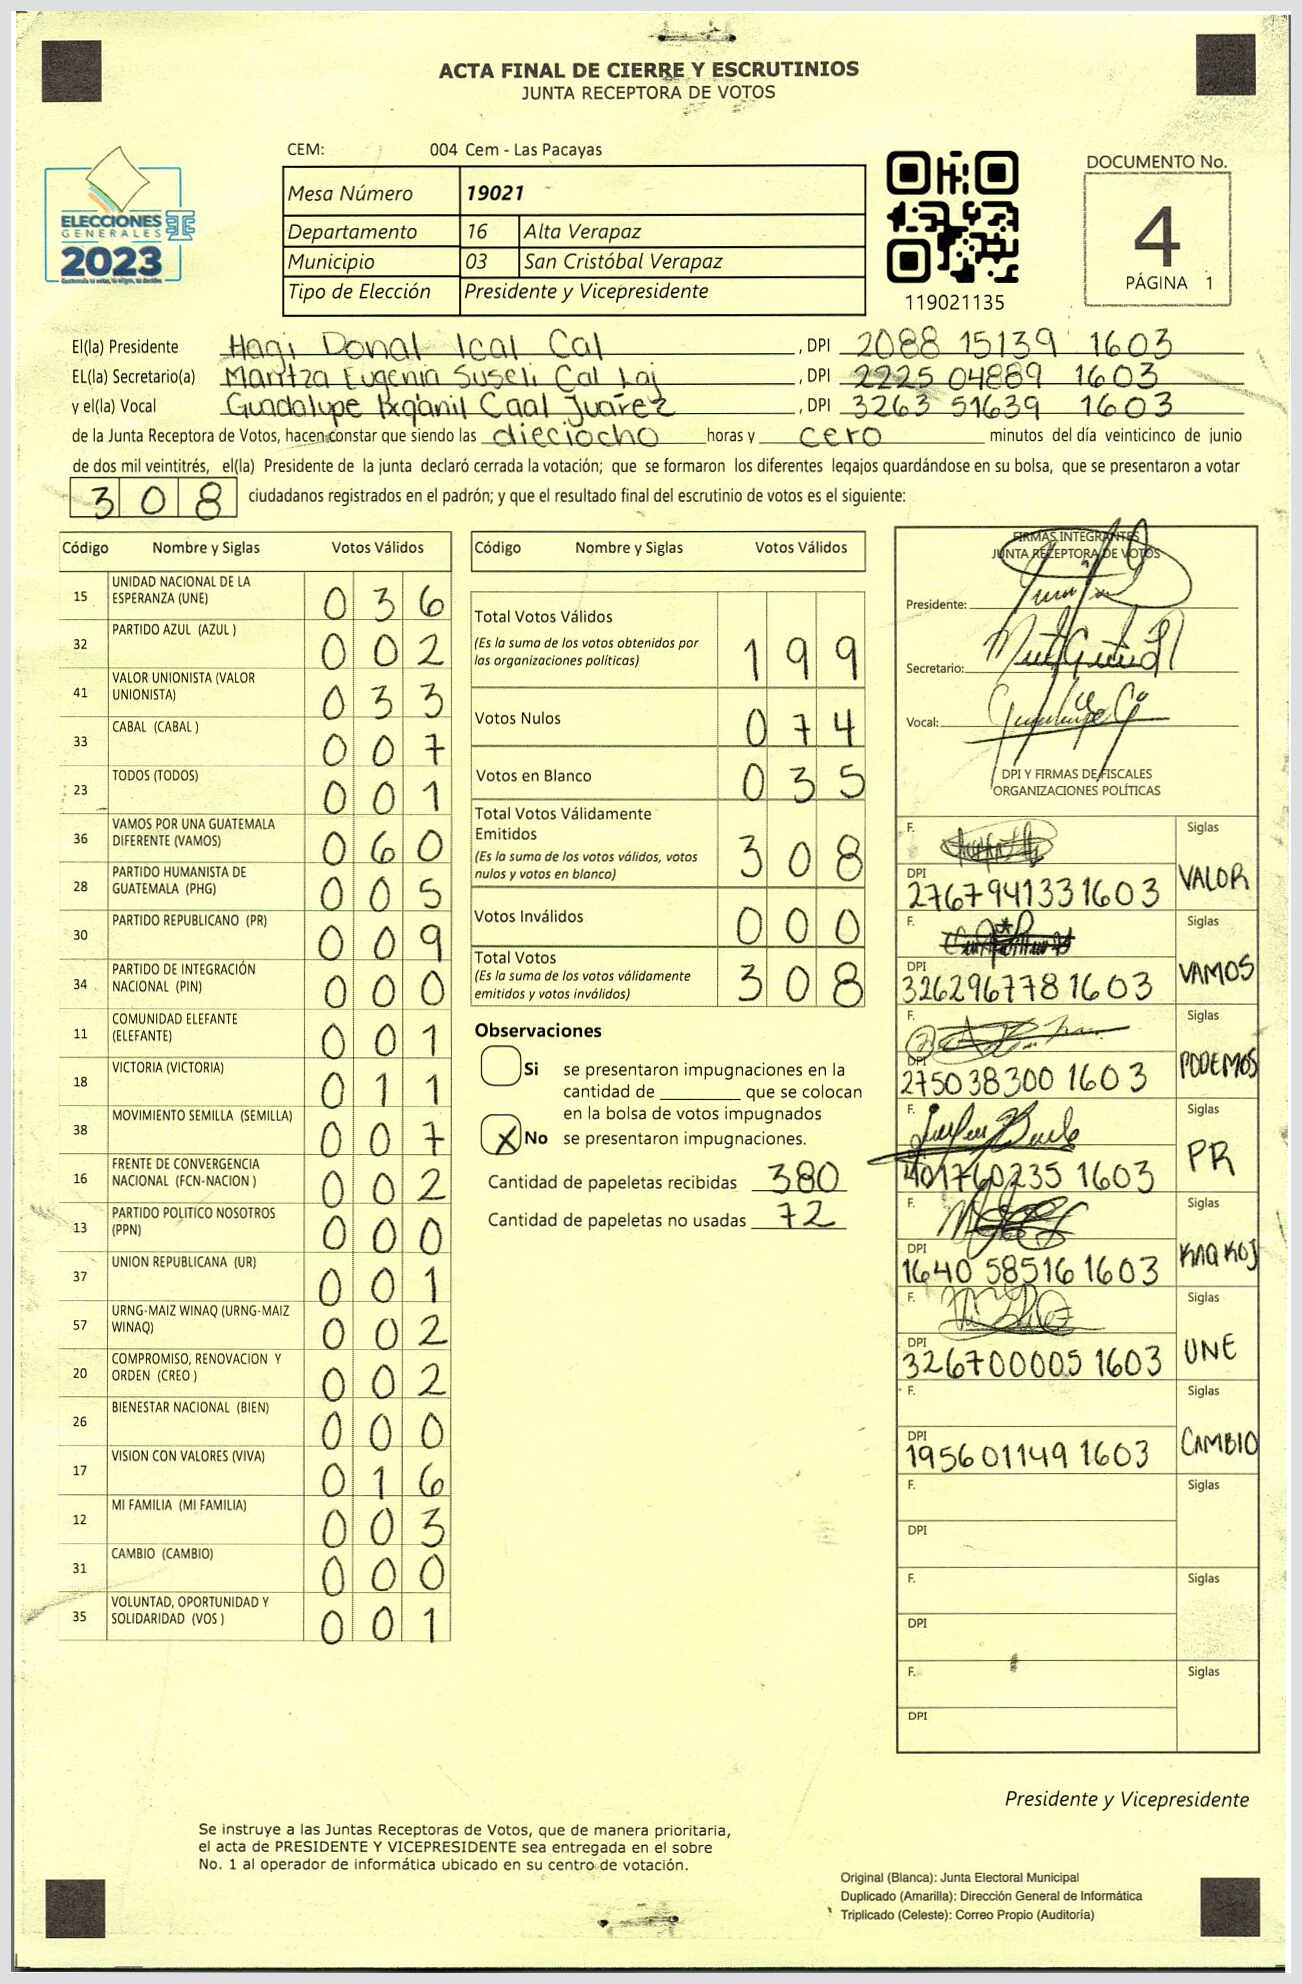 ACTA FINAL DE CIERRE Y ESCRUTINIOS
JUNTA RECEPTORA DE VOTOS
CEM: 004 Cem - Las Pacayas
Mesa Número 19021
Departamento 16 Alta Verapaz
Municipio 03 San Cristóbal Verapaz
Tipo de Elección Presidente y Vicepresidente
ELECCIONES
GENERALES
2023
119021135
DOCUMENTO No.
4
PÁGINA 1
El(la) Presidente Hagi Donal Ical Cal , DPI 2088 15139 1603
EL(la) Secretario(a) Maritza Eugenia Suseli Cal Laj , DPI 2225 04889 1603
y el(la) Vocal Guadalupe Ixqanil Caal Juárez , DPI 3263 51639 1603
de la Junta Receptora de Votos, hacen constar que siendo las dieciocho horas y cero minutos del día veinticinco de junio
de dos mil veintitrés, el(la) Presidente de la junta declaró cerrada la votación; que se formaron los diferentes legajos guardándose en su bolsa, que se presentaron a votar
308 ciudadanos registrados en el padrón; y que el resultado final del escrutinio de votos es el siguiente:
Código Nombre y Siglas Votos Válidos
15 UNIDAD NACIONAL DE LA ESPERANZA (UNE) 036
32 PARTIDO AZUL (AZUL ) 002
41 VALOR UNIONISTA (VALOR UNIONISTA) 033
33 CABAL (CABAL ) 007
23 TODOS (TODOS) 001
36 VAMOS POR UNA GUATEMALA DIFERENTE (VAMOS) 060
28 PARTIDO HUMANISTA DE GUATEMALA (PHG) 005
30 PARTIDO REPUBLICANO (PR) 009
34 PARTIDO DE INTEGRACIÓN NACIONAL (PIN) 000
11 COMUNIDAD ELEFANTE (ELEFANTE) 001
18 VICTORIA (VICTORIA) 011
38 MOVIMIENTO SEMILLA (SEMILLA) 007
16 FRENTE DE CONVERGENCIA NACIONAL (FCN-NACION ) 002
13 PARTIDO POLITICO NOSOTROS (PPN) 000
37 UNION REPUBLICANA (UR) 001
57 URNG-MAIZ WINAQ (URNG-MAIZ WINAQ) 002
20 COMPROMISO, RENOVACION Y ORDEN (CREO ) 002
26 BIENESTAR NACIONAL (BIEN) 000
17 VISION CON VALORES (VIVA) 016
12 MI FAMILIA (MI FAMILIA) 003
31 CAMBIO (CAMBIO) 000
35 VOLUNTAD, OPORTUNIDAD Y SOLIDARIDAD (VOS ) 001
Código Nombre y Siglas Votos Válidos
Total Votos Válidos
(Es la suma de los votos obtenidos por las organizaciones políticas) 199
Votos Nulos 074
Votos en Blanco 035
Total Votos Válidamente Emitidos
(Es la suma de los votos válidos, votos nulos y votos en blanco) 308
Votos Inválidos 000
Total Votos
(Es la suma de los votos válidamente emitidos y votos inválidos) 308
Observaciones
Si se presentaron impugnaciones en la
cantidad de ________ que se colocan
en la bolsa de votos impugnados
X No se presentaron impugnaciones.
Cantidad de papeletas recibidas 380
Cantidad de papeletas no usadas 72
FIRMAS INTEGRANTES
JUNTA RECEPTORA DE VOTOS
Presidente:
Secretario:
Vocal:
DPI Y FIRMAS DE FISCALES
ORGANIZACIONES POLÍTICAS
F. Siglas
DPI 2767941331603 VALOR
F. Siglas
DPI 3262967781603 VAMOS
F. Siglas
DPI 275038300 1603 PODEMOS
F. Siglas
401760235 1603 PR
F. Siglas
DPI 1640 58516 1603 KAQ KOJ
F. Siglas
DPI 326700005 1603 UNE
F. Siglas
DPI 195601149 1603 CAMBIO
F. Siglas
DPI
F. Siglas
DPI
F. Siglas
DPI
Presidente y Vicepresidente
Se instruye a las Juntas Receptoras de Votos, que de manera prioritaria,
el acta de PRESIDENTE Y VICEPRESIDENTE sea entregada en el sobre
No. 1 al operador de informática ubicado en su centro de votación.
Original (Blanca): Junta Electoral Municipal
Duplicado (Amarilla): Dirección General de Informática
Triplicado (Celeste): Correo Propio (Auditoría)